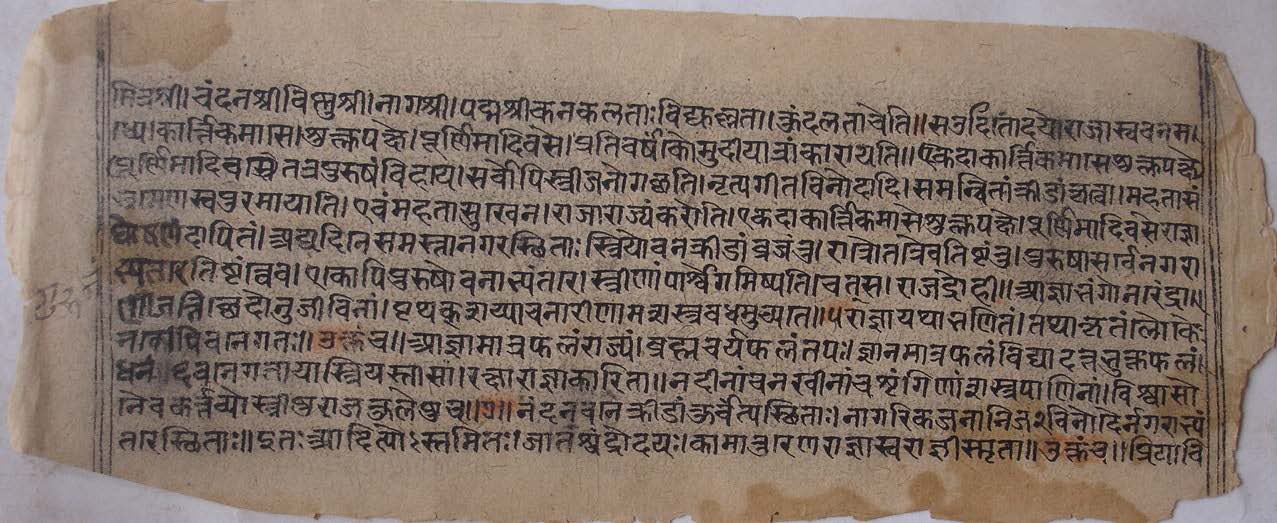 मित्रश्री। चंदनश्री विष्णुश्री। नागश्री। पद्मश्री कनकलताः विद्युल्लता। कुंदलता चेति॥ स उदितोदयो राजा स्ववनम
ध्ये। कार्त्तिकमासे। शुक्लपक्षे। पूर्णिमादिवसे। प्रतिवर्षं। कौमुदीयात्रां कारायति॥ एकदा कार्त्तिकमासे शुक्लपक्षे
पूर्णिमादिवसे तत्र पुरुषं विहाय। सर्वोपि स्त्रीजनो गच्छति। नृत्यगीतविनोदादि। समन्वितां क्रीडां कृत्वा। महतासं
स्वपुरमायाति। एवं महता सुखेन। राजा राज्यं करोति। एकदा कार्त्तिकमासे शुक्लपक्षे। पूर्णिमादिवसे राज्ञा
घोषणां दापितं। अद्य दिने समस्ता नगरस्थिताः स्त्रियो वनक्रीडां व्रजंतु। रात्रौ तत्रैव तिष्टंतु। पुरुषा सर्वे नगरा
भ्यंतरे तिष्टंत्वेव। एकोपि पुरुषो वनाभ्यंतरे। स्त्रीणां पार्श्वे गमिष्यति। चेत् स। राजद्रोही॥ आज्ञाभंगो नरेंद्रा॥
णां जनि। छेदोनुजीविनां। पृथक् शय्या च नारीणामशस्त्रवधमुच्यते॥ राज्ञा यथा भणितं। तथा कृतं। लोकः
वने गतः॥ उक्तं च॥ आज्ञामात्रफलं राज्यं। ब्रह्मचर्यफलं तपः। ज्ञानमात्रफलं विद्या दत्तभुक्तफलं।
धनं॥ वने गता या स्त्रियस्तासां। रक्षा राज्ञा कारिता॥ नदीनां च नखीनां च शृंगिणां शस्त्रपाणिनां॥ विश्वासो
नैव कर्त्तव्यो स्त्रीषु राजकुलेषु च॥ १॥ नंदनवने क्रीडां कुर्वंत्य स्थिताः। नागरिकजना निज २ विनोदैर्नगराभ्यं
तरे स्थिताः॥ इतः आदित्योऽस्तमितः। जातश्चंद्रोदयः। कामातुरेण राज्ञा स्वराज्ञी स्मृता॥ उक्तं च॥